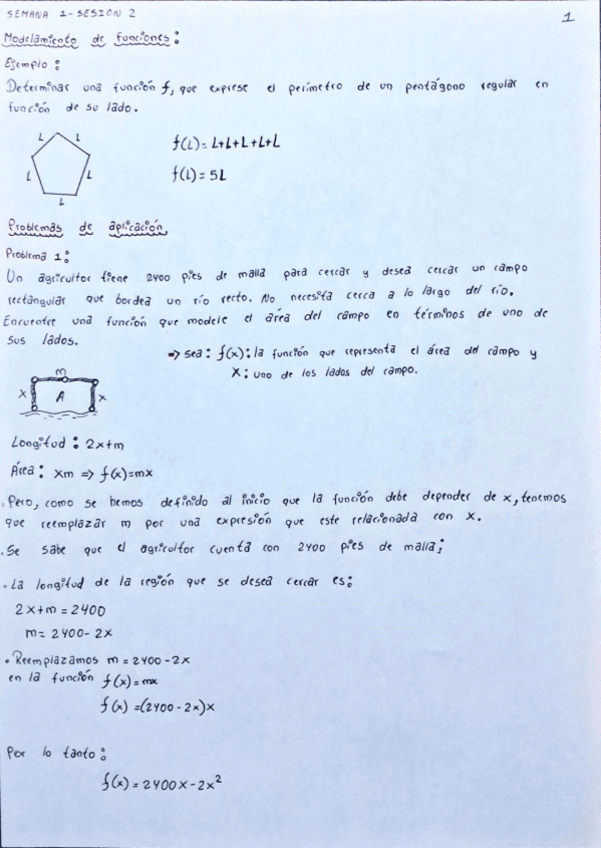 SEMANA 1-SESIÓN 2
1
Modelamiento de funciones:
Ejemplo:
Determinar una función f, que exprese el perímetro de un pentágono regular en
función de su lado.
L L
L L
L
f(L)= L+L+L+L+L
f(L)= 5L
Problemas de aplicación
Problema 1:
Un agricultor tiene 2400 pies de malla para cercar y desea cercar un campo
rectángular que bordea un río recto. No necesita cerca a lo largo del río.
Encuentre una función que modele el área del campo en términos de uno de
sus lados.
=> sea: f(x): la función que representa el área del campo y
x: uno de los lados del campo.
m
x A x
Longitud: 2x+m
Área: xm => f(x)=mx
. Pero, como se hemos definido al inicio que la función debe depender de x, tenemos
que reemplazar m por una expresión que este relacionada con x.
. Se sabe que el agricultor cuenta con 2400 pies de malla;
. La longitud de la región que se desea cercar es:
2x+m = 2400
m= 2400-2x
• Reemplazamos m = 2400-2x
en la función f(x)= mx
f(x) =(2400-2x)x
Por lo tanto:
f(x) = 2400x-2x²